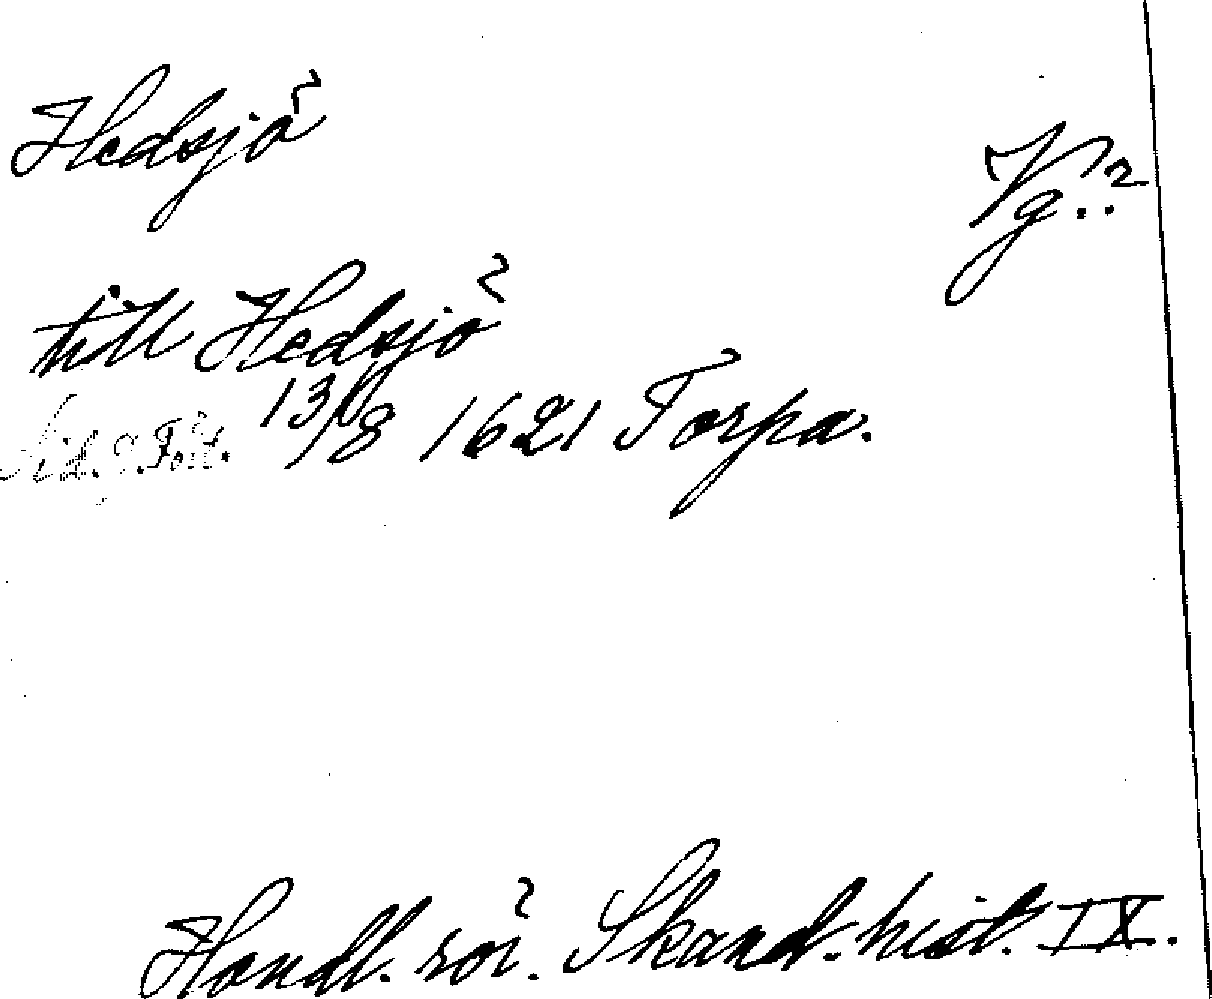 Hedsjö
Vg.?
till Hedsjö
13/8 1621 Torpa.
Handl. rör. Skand. hist. IX.